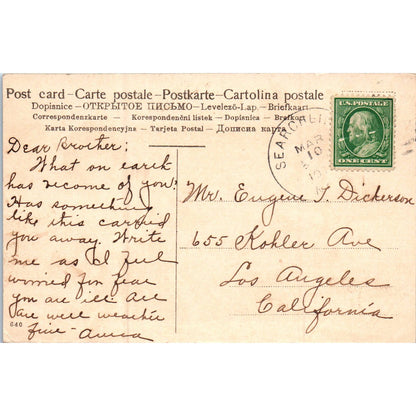 Post card – Carte postale – Postkarte – Cartolina postale
Dopisnice – ОТКРЫТОЕ ПИСЬМО – Levelező-Lap. – Briefkaart
Correspondenzkarte – Korespondenční listek – Dopisnica – Briefkort
Karta Korespondencyjna – Tarjeta Postal – Дописна карта
U.S. POSTAGE
ONE CENT
SEARCH
MAR
10
Dear Brother;
What on earth
has become of you?
Has something
like this carried
you away. Write
me as I feel
worried for fear
you are ill. All
are well weather
fine –
640
Mr. Eugene T. Dickerson
655 Kohler Ave
Los Angeles
California